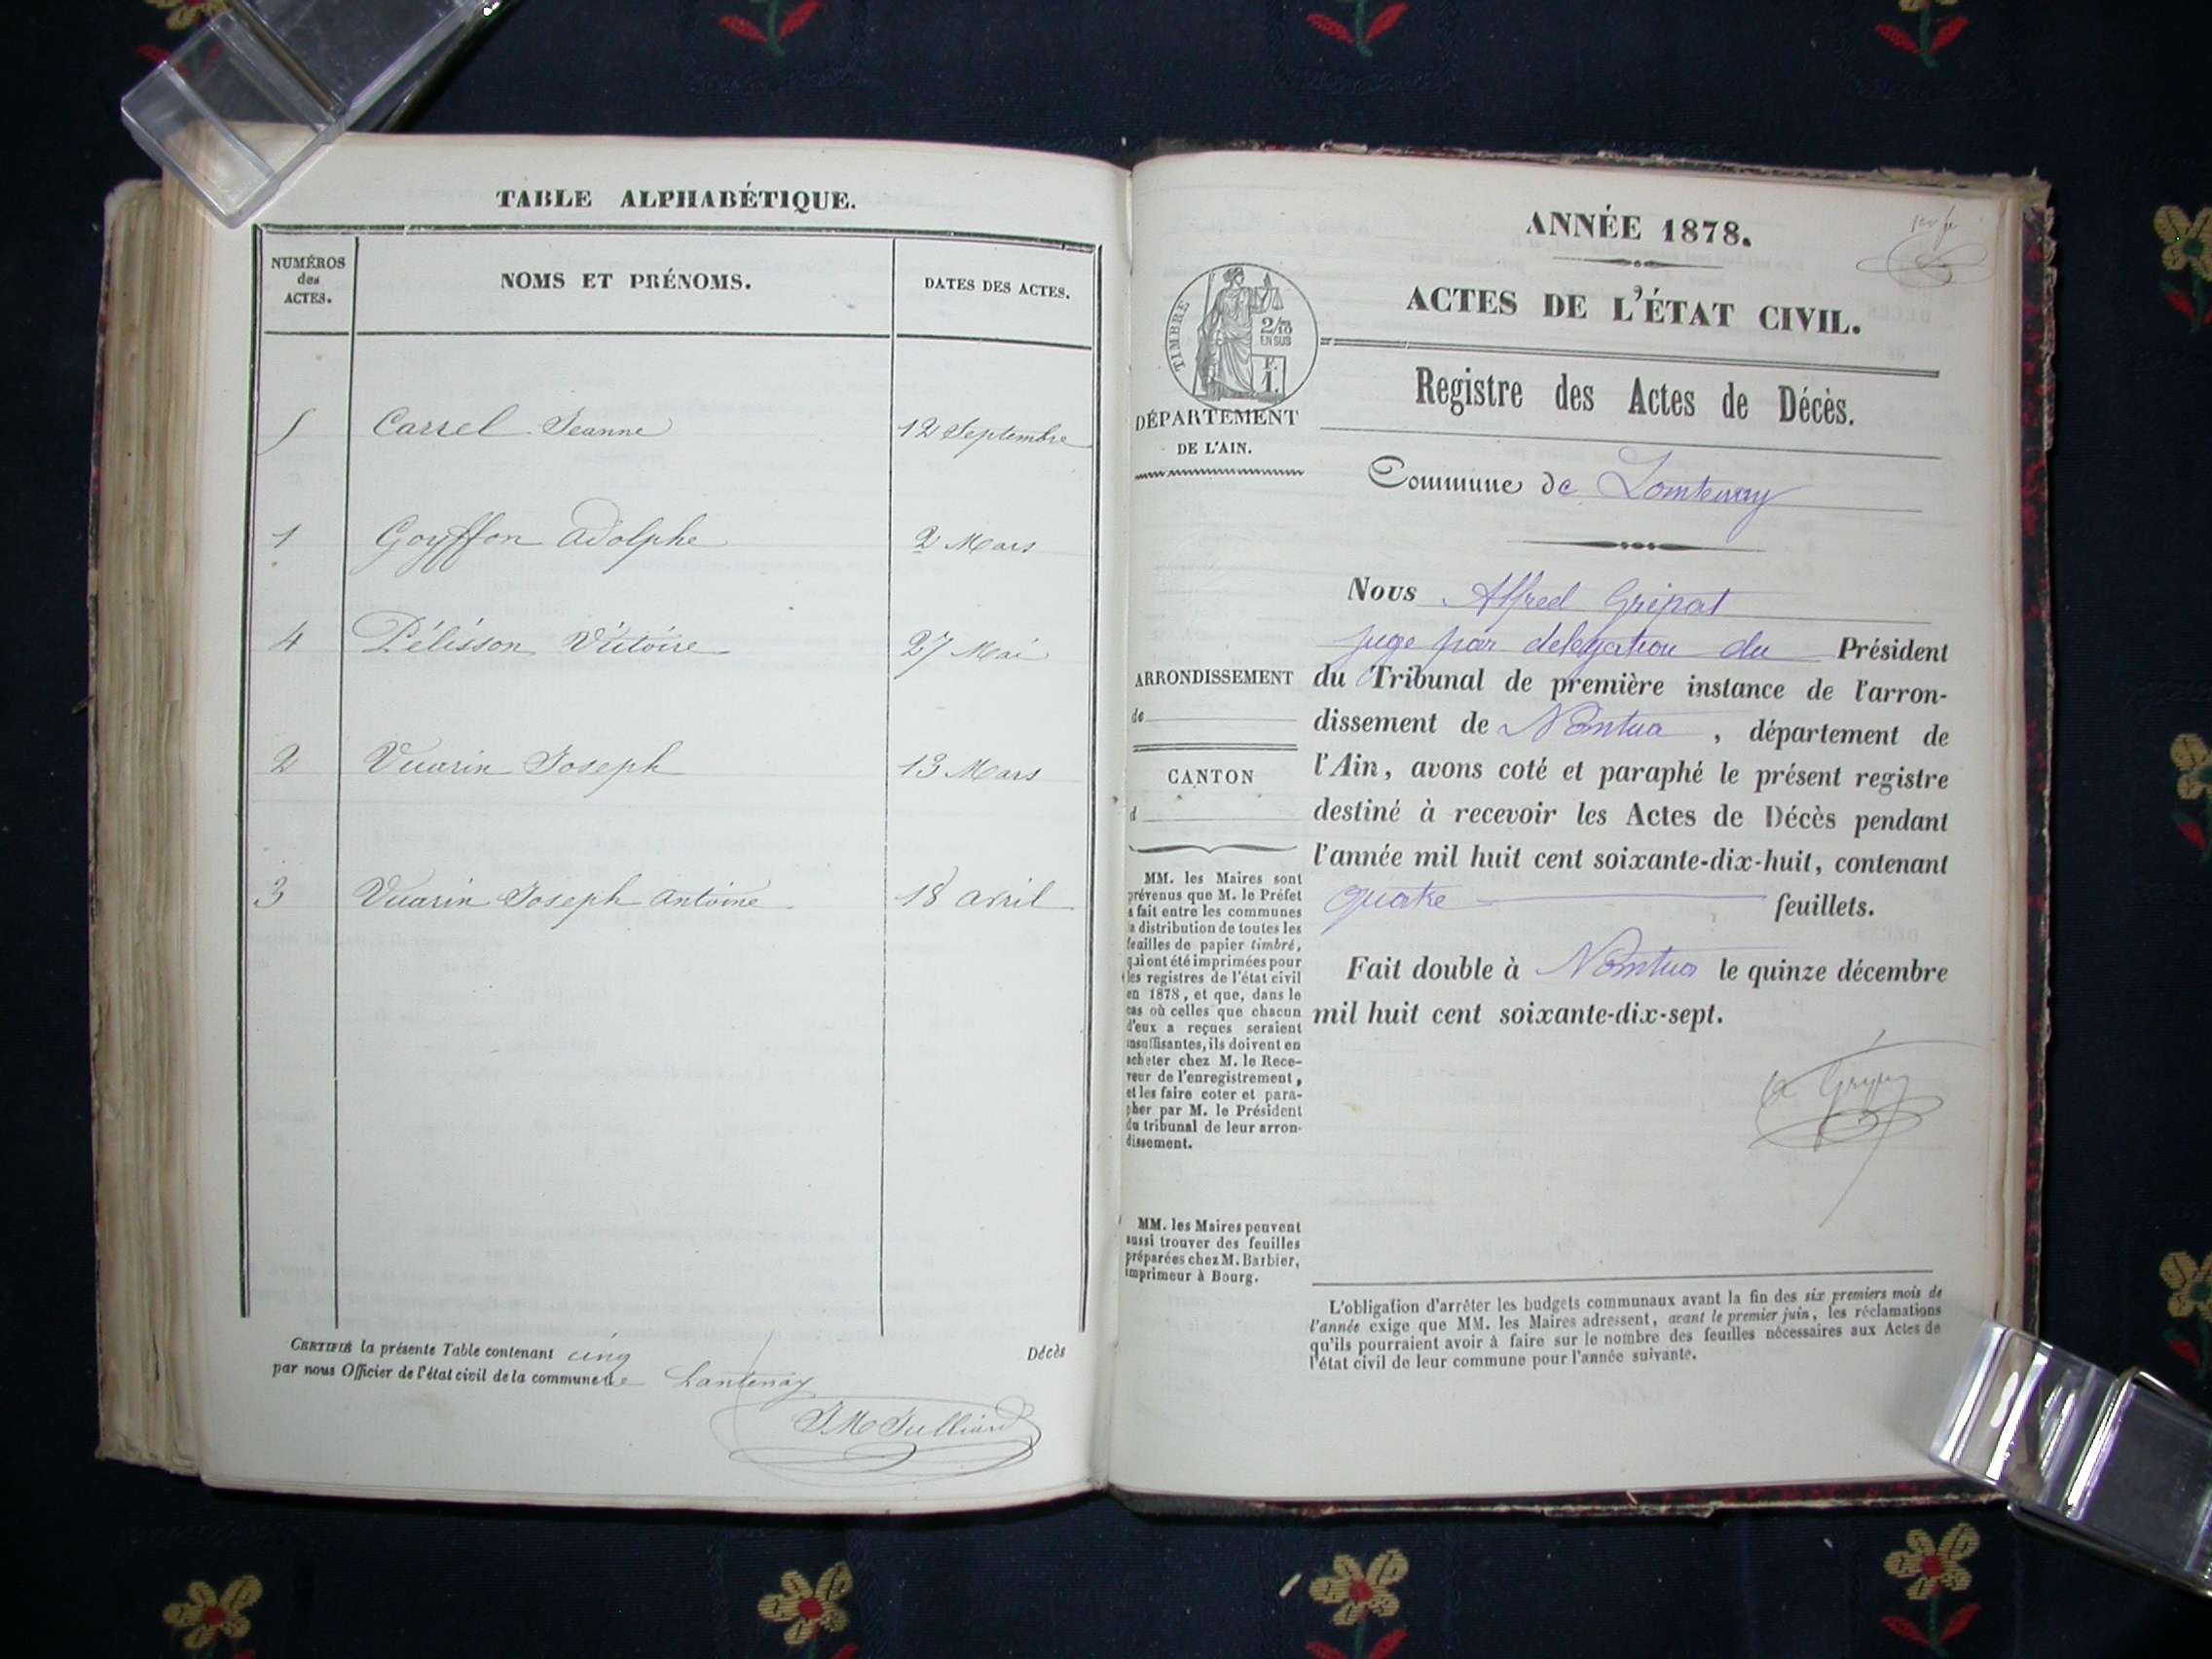 TABLE ALPHABÉTIQUE.
NUMÉROS
des
ACTES.
NOMS ET PRÉNOMS.
DATES DES ACTES.
5 Carrel Jeanne 12 Septembre
1 Goyffon adolphe 2 Mars
4 Pélisson Victoire 27 Mai
2 Vuarin Joseph 13 Mars
3 Vuarin Joseph antoine 18 avril
CERTIFIÉ la présente Table contenant cinq Décès
par nous Officier de l'état civil de la commune de Lantenay
J M Julliard
ANNÉE 1878.
ACTES DE L'ÉTAT CIVIL.
TIMBRE
2/10
EN SUS
F.
1.
DÉPARTEMENT
DE L'AIN.
Registre des Actes de Décès.
Commune de Lantenay
Nous Alfred Gripat
juge par delegation du Président
du Tribunal de première instance de l'arron-
dissement de Nantua, département de
l'Ain, avons coté et paraphé le présent registre
destiné à recevoir les Actes de Décès pendant
l'année mil huit cent soixante-dix-huit, contenant
quatre feuillets.
Fait double à Nantua le quinze décembre
mil huit cent soixante-dix-sept.
ARRONDISSEMENT
de
CANTON
d
MM. les Maires sont
prévenus que M. le Préfet
a fait entre les communes
la distribution de toutes les
feuilles de papier timbré,
qui ont été imprimées pour
les registres de l'état civil
en 1878, et que, dans le
cas où celles que chacun
d'eux a reçues seraient
insuffisantes, ils doivent en
acheter chez M. le Rece-
veur de l'enregistrement,
et les faire coter et para-
pher par M. le Président
du tribunal de leur arron-
dissement.
MM. les Maires peuvent
aussi trouver des feuilles
préparées chez M. Barbier,
imprimeur à Bourg.
L'obligation d'arrêter les budgets communaux avant la fin des six premiers mois de
l'année exige que MM. les Maires adressent, avant le premier juin, les réclamations
qu'ils pourraient avoir à faire sur le nombre des feuilles nécessaires aux Actes de
l'état civil de leur commune pour l'année suivante.